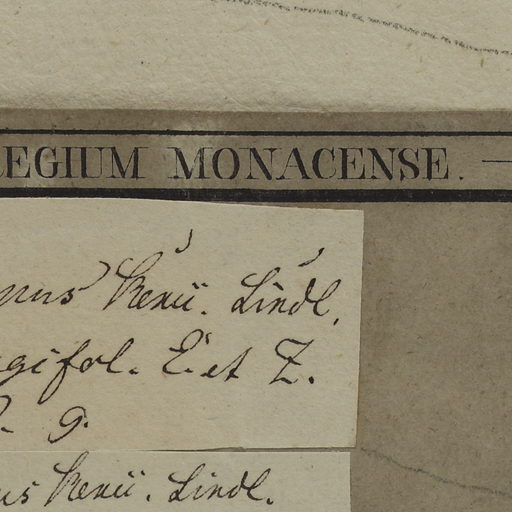 EGIUM MONACENSE.
nus Kexii. Lindl,
gifol. E. et Z.
9.
us Kexii. Lindl.